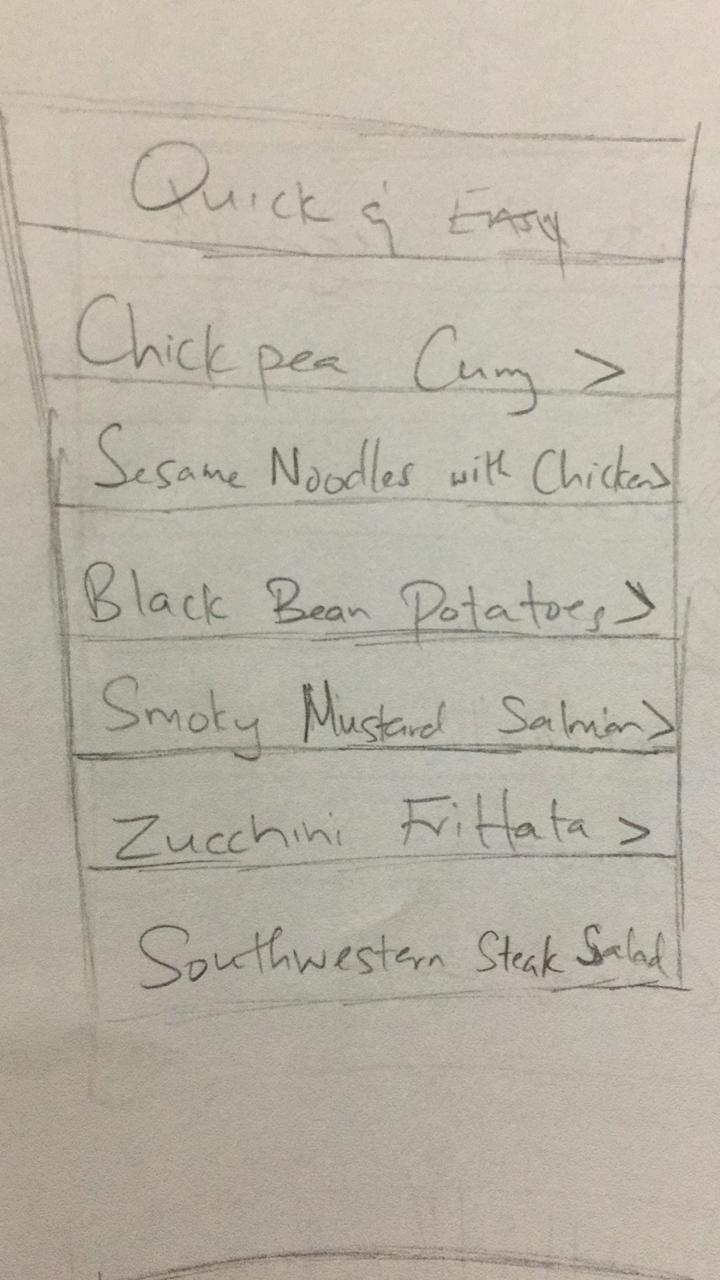 Quick & Easy
Chickpea Curry >
Sesame Noodles with Chicken >
Black Bean Potatoes >
Smoky Mustard Salmon >
Zucchini Frittata >
Southwestern Steak Salad